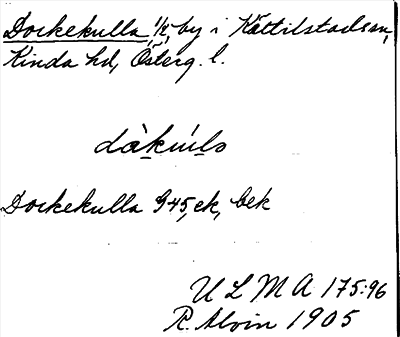 Dockekulla 1/2, by i Kättilstads sn,
Kinda hd, Österg. l.
Dockekulla G 45, ek, bek
U L M A 175:96
R. Alvin 1905